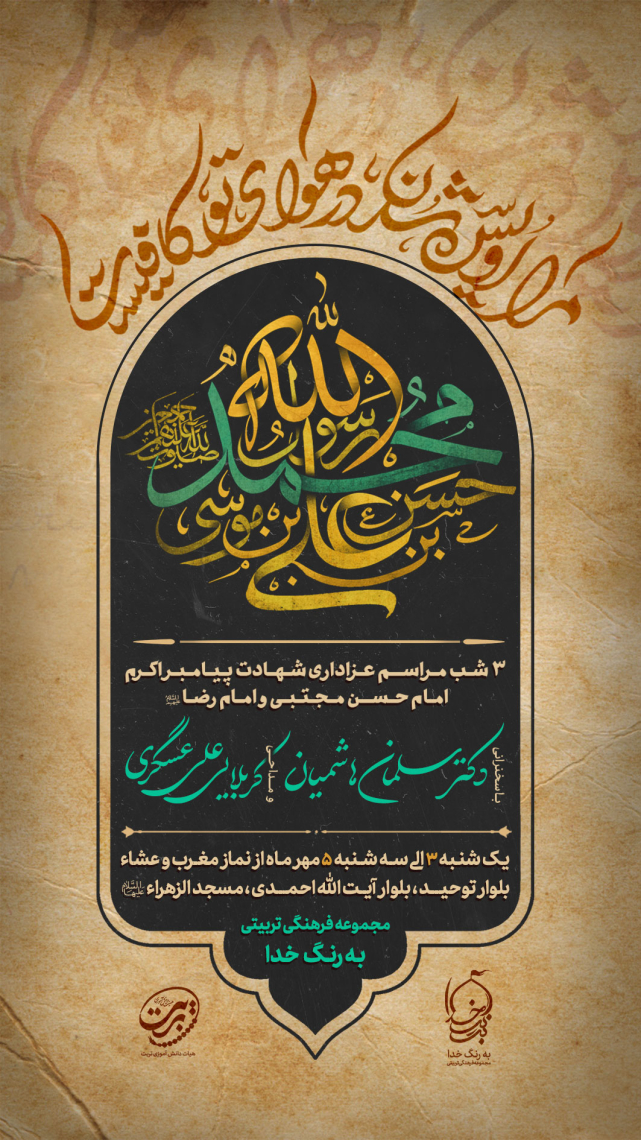 مرا اویس شدن در هوای تو کافیست
محمد رسول الله
صلوات الله علیهم اجمعین
حسن بن علی بن موسی
۳ شب مراسم عزاداری شهادت پیامبر اکرم
امام حسن مجتبی و امام رضا علیهم السلام
با سخنرانی دکتر سلمان هاشمیان و مداحی کربلایی علی عسگری
یک شنبه ۳ الی سه شنبه ۵ مهر ماه از نماز مغرب و عشاء
بلوار توحید، بلوار آیت الله احمدی، مسجد الزهراء علیها السلام
مجموعه فرهنگی تربیتی
به رنگ خدا
تربت
هیات دانش آموزی تربت
به رنگ خدا
به رنگ خدا
مجموعه فرهنگی تربیتی